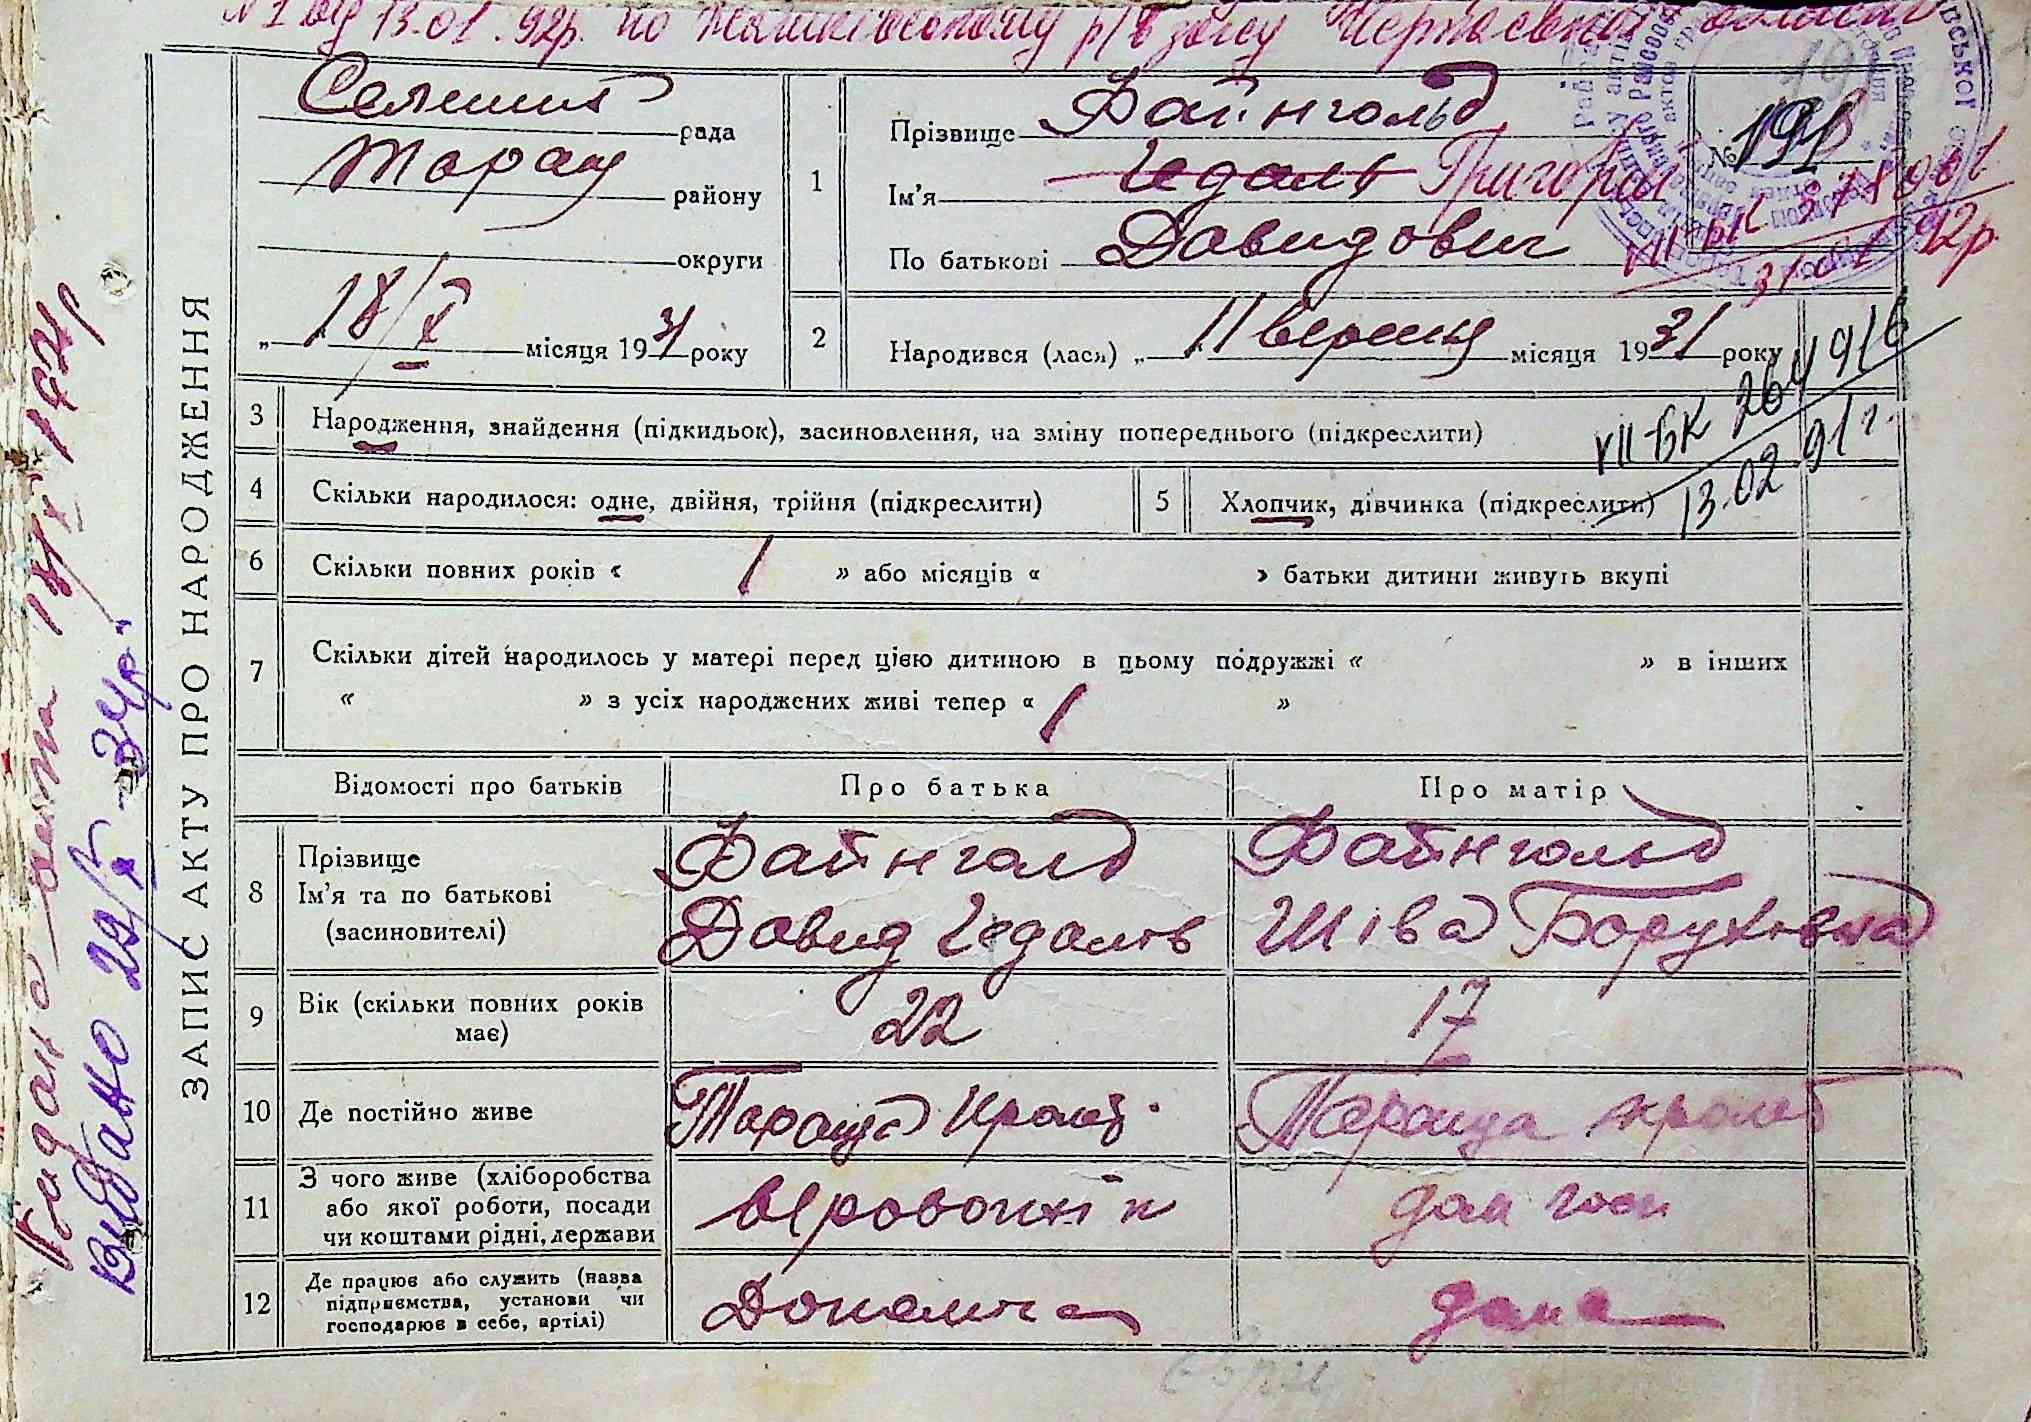 № 1 від 13.01.92р. по р/в загсу Черкаської області
ЗАПИС АКТУ ПРО НАРОДЖЕННЯ
рада
Таращ району
округи
„ 18/X місяця 1931 року
1
Прізвище Файнгольд
Ім'я Гедаль Григорій
По батькові Давидович
№ 191
VII БК
31.01.92р.
2
Народився (лася) „ 11 вересня місяця 1931 року
3 Народження, знайдення (підкидьок), засиновлення, на зміну попереднього (підкреслити)
VII-БК 264916
13.02.91г.
4 Скільки народилося: одне, двійня, трійня (підкреслити)
5 Хлопчик, дівчинка (підкреслити)
6 Скільки повних років « 1 » або місяців « » батьки дитини живуть вкупі
7 Скільки дітей народилось у матері перед цією дитиною в цьому подружжі « » в інших
« » з усіх народжених живі тепер « 1 »
Відомості про батьків Про батька Про матір
8 Прізвище
Ім'я та по батькові
(засиновителі)
Файнголд
Давид Гедалів
Файнгольд
Шіва Борухівна
9 Вік (скільки повних років
має)
22
17
10 Де постійно живе
Тараща
Тараща
11 З чого живе (хліборобства
або якої роботи, посади
чи коштами рідні, держави
дом госп
12 Де працює або служить (назва
підприємства, установи чи
господарює в себе, артілі)
дома
Видано 22/X-34р.